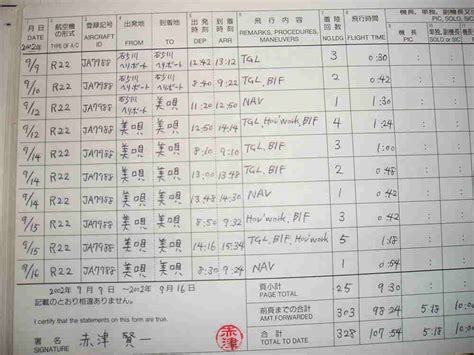 月日 航空機の形式 登録記号 出発地 到着地 出発時刻 到着時刻 飛行内容 着陸回数 飛行時間
DATE TYPE OF A/C AIRCRAFT ID FROM TO DEP ARR REMARKS, PROCEDURES, MANEUVERS NO.LDG FLIGHT TIME PIC
2002年
9/9 R22 JA7988 石川ヘリポート 石川ヘリポート 12:42 13:12 TGL 3 0:30
9/10 R22 JA7988 ヘリポート ヘリポート 8:40 9:22 TGL, BIF 2 0:42
9/12 R22 JA7988 ヘリポート 美唄 11:20 12:50 NAV 1 1:30
9/12 R22 JA7988 美唄 美唄 12:50 14:14 TGL, Hov'work, BIF 4 1:24
9/14 R22 JA7988 美唄 美唄 8:10 9:10 TGL, BIF 3 1:00
9/14 R22 JA7988 美唄 美唄 13:00 13:48 TGL, BIF 2 0:48
9/14 R22 JA7988 美唄 美唄 13:48 14:30 NAV 1 0:42
9/15 R22 JA7988 美唄 美唄 8:50 9:32 Hov'work, BIF 3 0:42
9/15 R22 JA7988 美唄 美唄 14:16 15:34 TGL, Hov'work, BIF 5 1:18
9/16 R22 JA7988 美唄 美唄 8:30 9:24 NAV 1 0:54
2002年9月9日 ～2002年9月16日
記載のとおり相違ありません。
I certify that the statements on this form are true.
署名 SIGNATURE 赤津 賢一
赤津
頁小計 PAGE TOTAL 25 9:30
前頁までの合計 AMT.FORWARDED 303 98:24 5:18
合計 TOTAL TO DATE 328 107:54 5:18